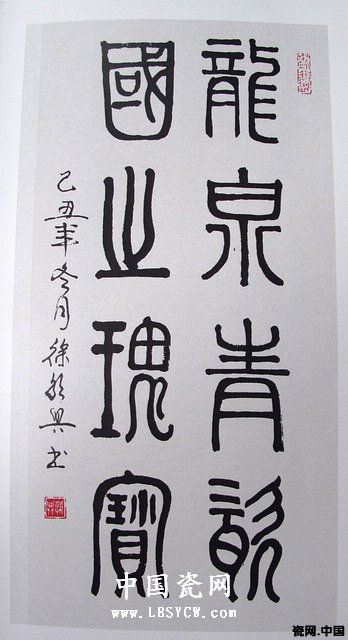 龍泉青瓷
國之瑰寶
己丑年冬月徐朝兴书
中国瓷网
www.LBSYCW.com
瓷网.中国